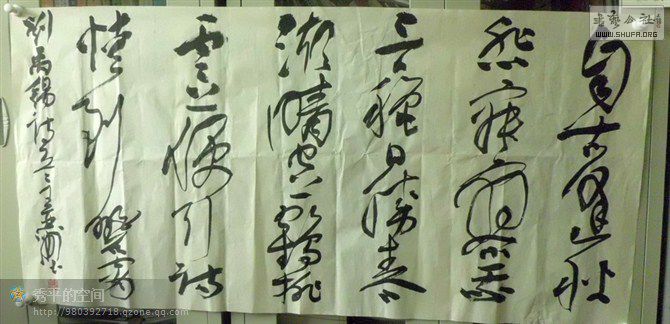 自古逢秋
悲寂寥我
言穐日勝春
潮晴空一鶴排
雲上便引詩
情到碧霄
劉禹錫詩
書藝公社
WWW.SHUFA.ORG
秀平的空间
http://980392718.qzone.qq.com